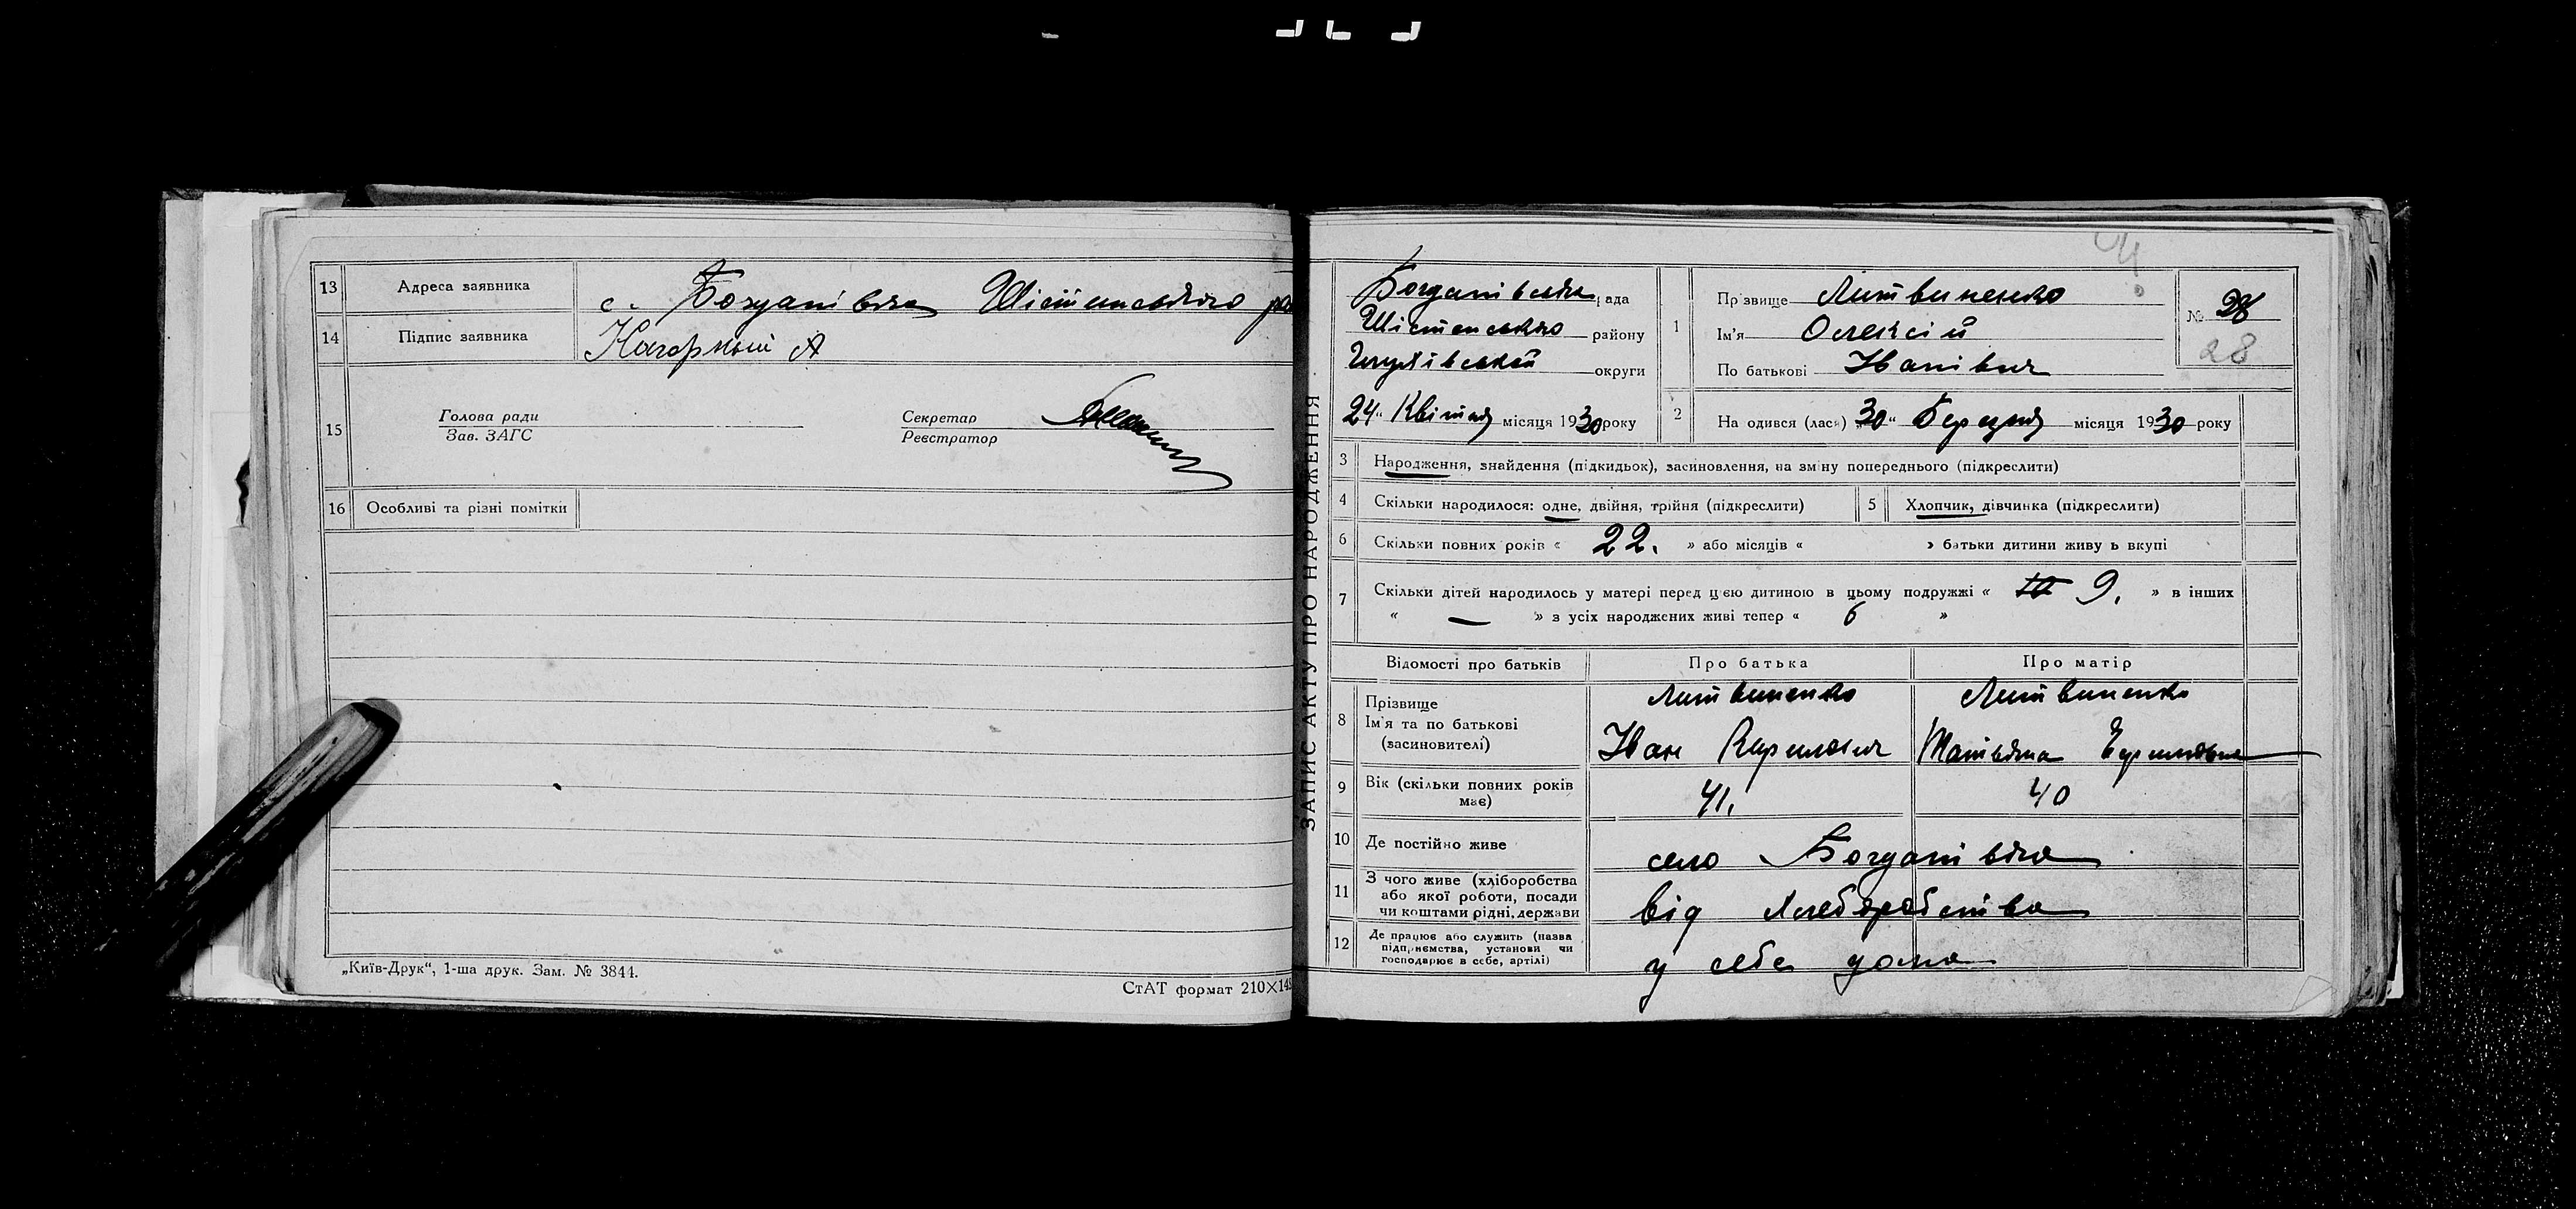 13 Адреса заявника с. Богданівка Шістенського ра
14 Підпис заявника Нагорный А
15 Голова ради
Зав. ЗАГС
Секретар
Реєстратор
16 Особливі та різні помітки
„Київ-Друк“, 1-ша друк. Зам. № 3844.
СтАТ формат 210×148
ЗАПИС АКТУ ПРО НАРОДЖЕННЯ
Богданівська рада
Шістенського району
округи
24 " Квітня місяця 1930 року
1 Прізвище Литвиненко
Ім'я Олексій
По батькові Іванівич
№ 28
28
2 На одився (лася) „30" Березня місяця 1930 року
3 Народження, знайдення (підкидьок), засиновлення, на зміну попереднього (підкреслити)
4 Скільки народилося: одне, двійня, трійня (підкреслити)
5 Хлопчик, дівчинка (підкреслити)
6 Скільки повних років « 22. » або місяців « » батьки дитини живуть вкупі
7 Скільки дітей народилось у матері перед цією дитиною в цьому подружжі « 10 9. » в інших
« — » з усіх народжених живі тепер « 6 »
Відомості про батьків Про батька Про матір
8 Прізвище
Ім'я та по батькові
(засиновителі)
Литвиненко
Іван Кирилович
Литвиненко
Татьяна
9 Вік (скільки повних років має) 41. 40
10 Де постійно живе село Богданівка
11 З чого живе (хліборобства
або якої роботи, посади
чи коштами рідні, держави
від хлеборобства
12 Де працює або служить (назва
підприємства, установи чи
господарює в себе, артілі)
у себе дома